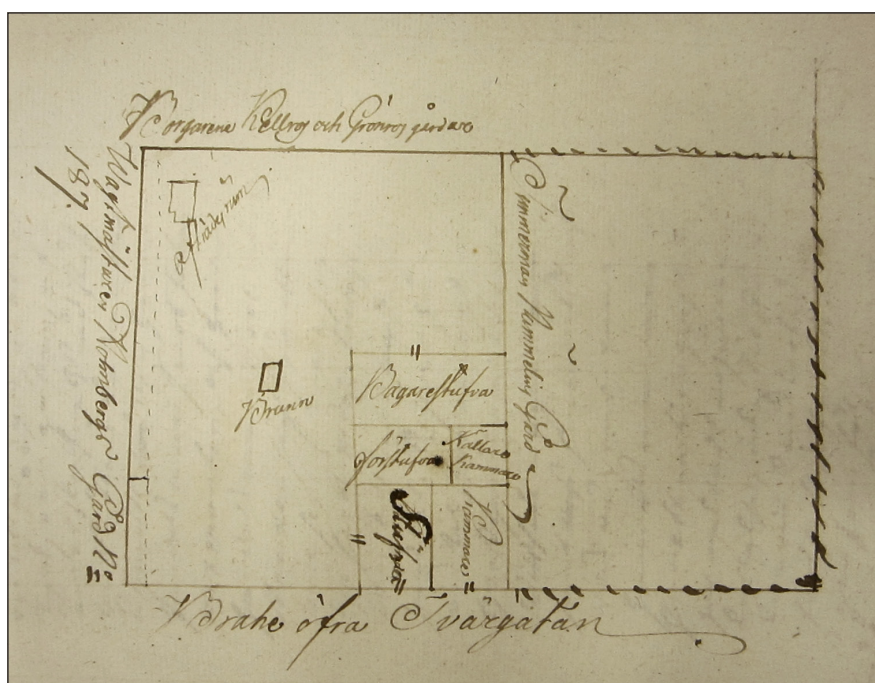 Borgarene Kellros och Grönros gårdar
Wagtmästaren Rohnbergs Gård No
187.
afträdesrum
Cimmerman Flammelins Gård
Bagarestufva
Brunn
förstufva
Källare
kammare
Stufva
Kammare
Brahe öfra Tvärgatan